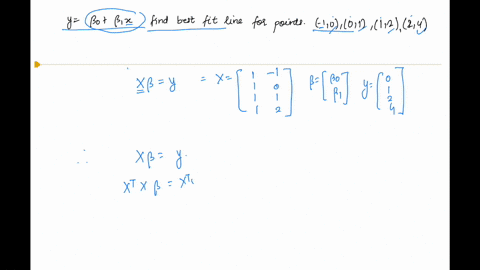 y = β0 + β1x find best fit line for points. (-1,0), (0,1), (1,2), (2,4)
Xβ = y = X = [1 -1; 1 0; 1 1; 1 2] β = [β0; β1] y = [0; 1; 2; 4]
∴ Xβ = y.
XᵀXβ = Xᵀ